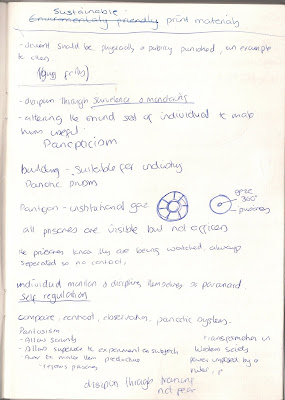 Sustainable
Environmentally friendly print materials
- should be physically & publicly punished, an example
to others
- discipline through surveillance &
- altering the mind set of individual to make
them useful
Panopocism
building - suitable for industry
Panotic prism
Panticon - institutional gaze
gaze
360°
prisoners
all prisoners are visible but not officers
the prisoners know they are being watched, always
seperated so no contact,
individual monitors & disciplins themselves so paranoid
self regulation
compare, contrast, observation, panoctic system.
Pantosism
- Allow Scrutiny
- Allow supervisor to experiment on subjects
- Aims to make them productive
- reforms prisoners
Transformation in
Western Society
power imposed by a
ruler,
discipline through training
not fear